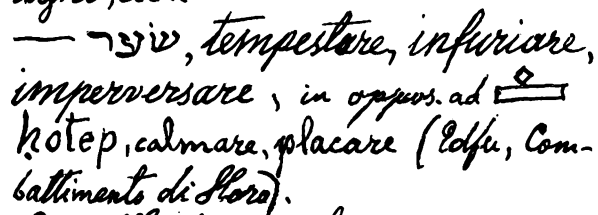 —, tempestare, infuriare,
imperversare, in oppos. ad
ḥotep, calmare, placare (Edfu, Com-
battimento di Horo).